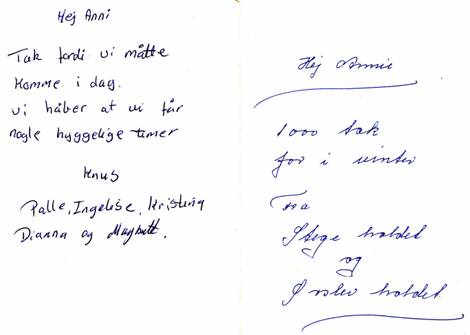 Hej Anni
Tak fordi vi måtte
komme i dag.
vi håber at vi får
nogle hyggelige timer
Knus
Palle, Ingelise, Kristina
Dianna og Maybritt.
Hej Annie
1000 tak
for i vinter
Fra
Stege holdet
og
Ørslev holdet